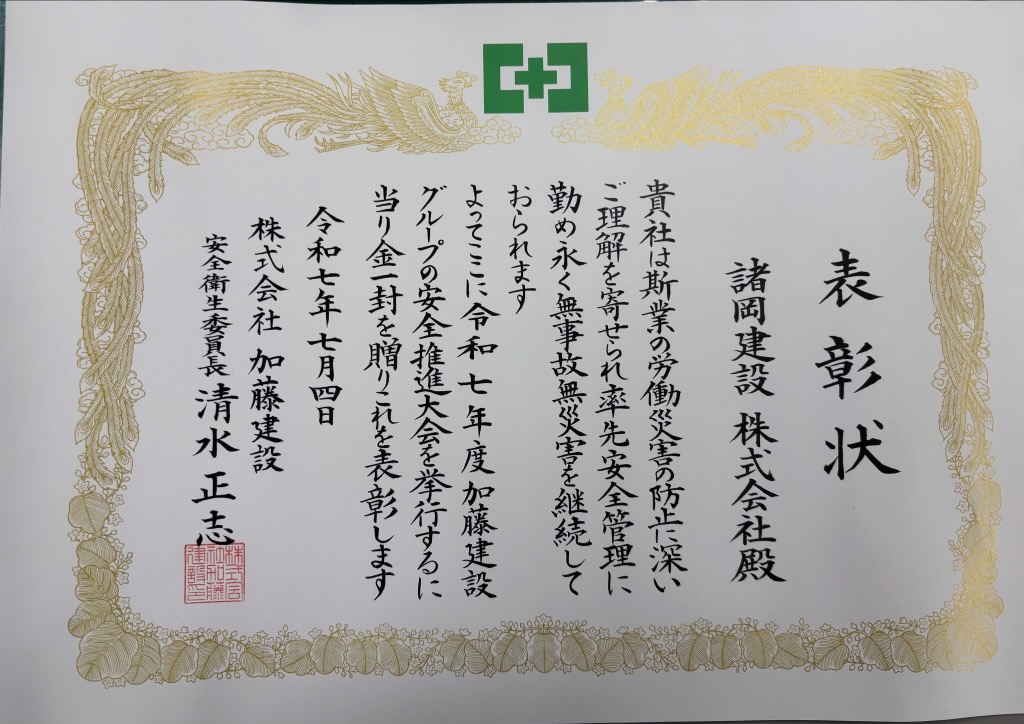 表彰状
諸岡建設 株式会社殿
貴社は斯業の労働災害の防止に深い
ご理解を寄せられ率先安全管理に
勤め永く無事故無災害を継続して
おられます
よってここに令和七年度加藤建設
グループの安全推進大会を挙行するに
当り金一封を贈りこれを表彰します
令和七年七月四日
株式会社 加藤建設
安全衛生委員長 清水正志